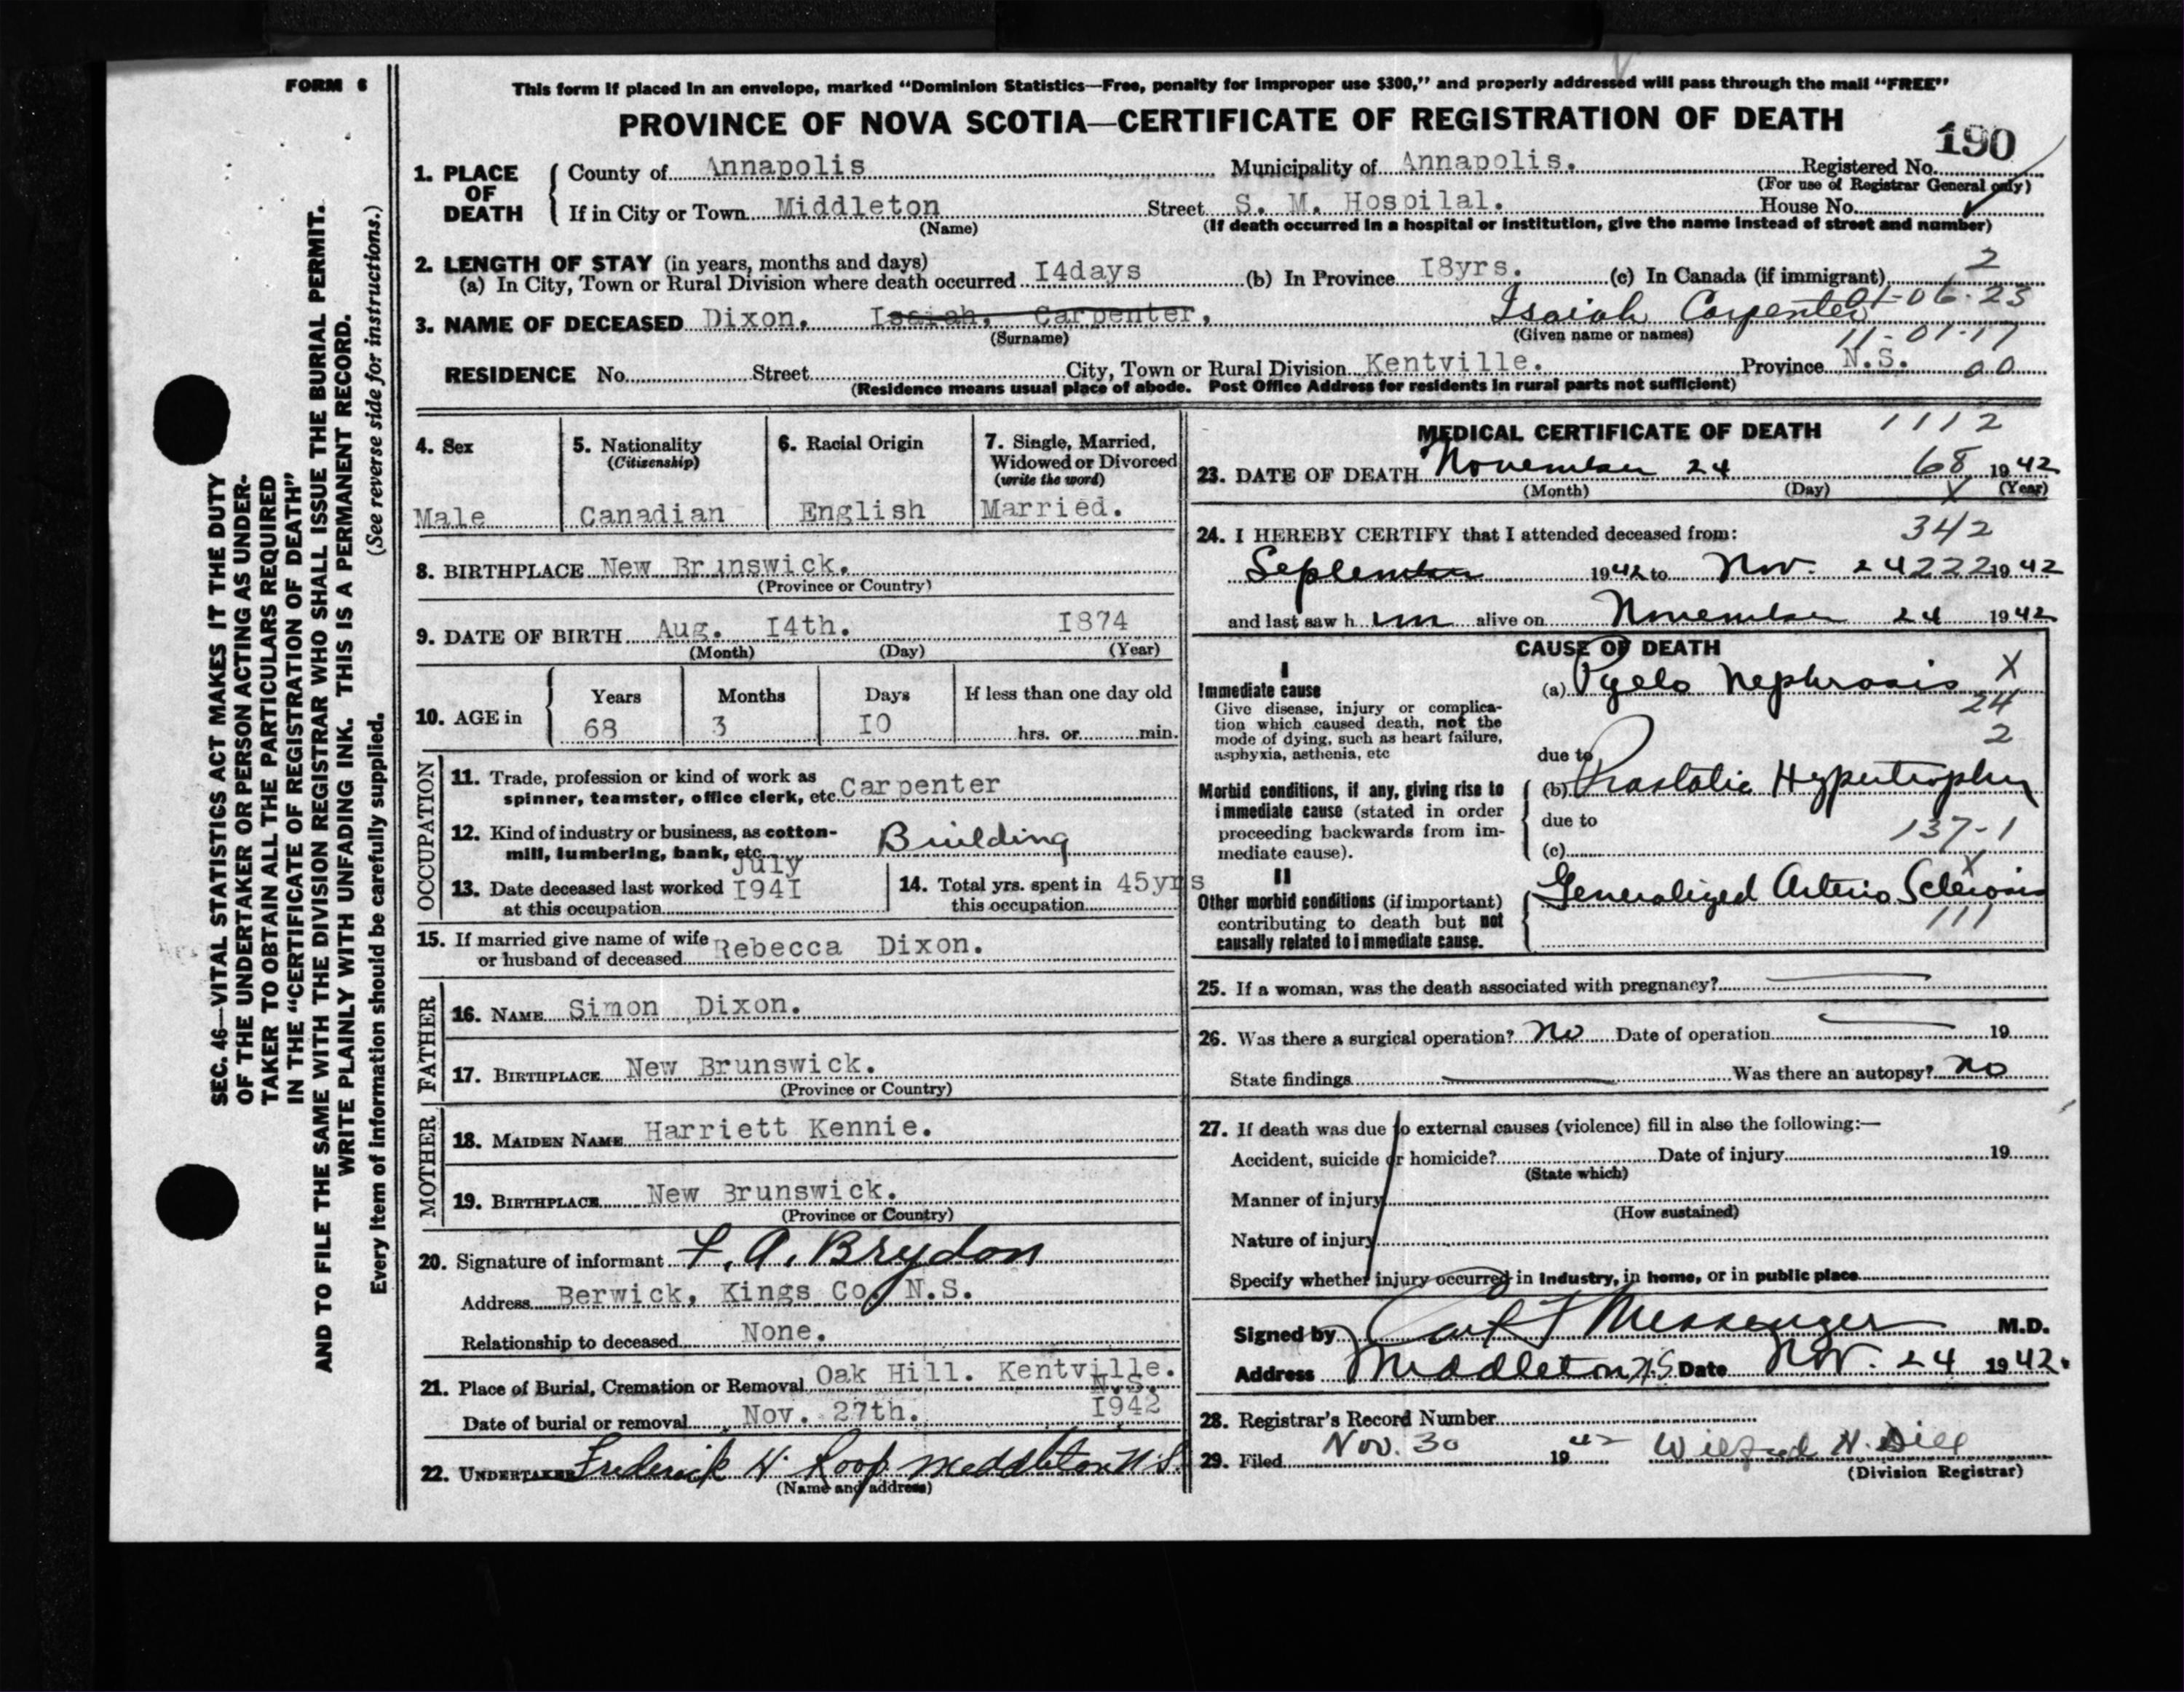 FORM 6
This form if placed in an envelope, marked "Dominion Statistics—Free, penalty for improper use $300," and properly addressed will pass through the mail "FREE"
PROVINCE OF NOVA SCOTIA—CERTIFICATE OF REGISTRATION OF DEATH
190
1. PLACE OF DEATH County of Annapolis Municipality of Annapolis. Registered No.
(For use of Registrar General only)
If in City or Town Middleton Street S. M. Hospilal. House No.
(Name) (If death occurred in a hospital or institution, give the name instead of street and number)
2. LENGTH OF STAY (in years, months and days)
(a) In City, Town or Rural Division where death occurred I4days (b) In Province I8yrs. (c) In Canada (if immigrant) 2
01-06-23
3. NAME OF DECEASED Dixon, Isaiah. Carpenter, Isaiah Carpenter
(Surname) (Given name or names) 11-01-17
RESIDENCE No. Street City, Town or Rural Division Kentville. Province N.S. 00
(Residence means usual place of abode. Post Office Address for residents in rural parts not sufficient)
4. Sex Male
5. Nationality (Citizenship) Canadian
6. Racial Origin English
7. Single, Married, Widowed or Divorced (write the word) Married.
8. BIRTHPLACE New Brunswick.
(Province or Country)
9. DATE OF BIRTH Aug. I4th. I874
(Month) (Day) (Year)
10. AGE in Years 68 Months 3 Days I0 If less than one day old hrs. or min.
OCCUPATION
11. Trade, profession or kind of work as spinner, teamster, office clerk, etc. Carpenter
12. Kind of industry or business, as cotton-mill, lumbering, bank, etc. Building
13. Date deceased last worked at this occupation July I94I
14. Total yrs. spent in this occupation 45yrs
15. If married give name of wife or husband of deceased Rebecca Dixon.
FATHER
16. NAME Simon Dixon.
17. BIRTHPLACE New Brunswick.
(Province or Country)
MOTHER
18. MAIDEN NAME Harriett Kennie.
19. BIRTHPLACE New Brunswick.
(Province or Country)
20. Signature of informant F. A. Brydon
Address Berwick, Kings Co. N.S.
Relationship to deceased None.
21. Place of Burial, Cremation or Removal Oak Hill. Kentville. N.S.
Date of burial or removal Nov. 27th. I942
22. UNDERTAKER Frederick H. Roop Middleton N.S.
(Name and address)
MEDICAL CERTIFICATE OF DEATH 1112
23. DATE OF DEATH November 24 68 1942
(Month) (Day) X (Year)
24. I HEREBY CERTIFY that I attended deceased from: 342
September 1942 to Nov. 24 222 1942
and last saw h im alive on November 24 1942
CAUSE OF DEATH
I
Immediate cause
Give disease, injury or complication which caused death, not the mode of dying, such as heart failure, asphyxia, asthenia, etc
(a) Pyelo Nephrosis X
24
2
due to
Morbid conditions, if any, giving rise to immediate cause (stated in order proceeding backwards from immediate cause).
(b) Prostatic Hypertrophy
due to
137-1
(c)
X
II
Other morbid conditions (if important) contributing to death but not causally related to immediate cause.
Generalized Arterio Sclerosis
111
25. If a woman, was the death associated with pregnancy?
26. Was there a surgical operation? No Date of operation 19
State findings Was there an autopsy? No
27. If death was due to external causes (violence) fill in also the following:—
Accident, suicide or homicide? Date of injury 19
(State which)
Manner of injury
(How sustained)
Nature of injury
Specify whether injury occurred in industry, in home, or in public place
Signed by Messenger M.D.
Address Middleton N.S. Date Nov. 24 1942.
28. Registrar's Record Number
29. Filed Nov. 30 1942 Wilfred H. Dill
(Division Registrar)
SEC. 46—VITAL STATISTICS ACT MAKES IT THE DUTY
OF THE UNDERTAKER OR PERSON ACTING AS UNDER-
TAKER TO OBTAIN ALL THE PARTICULARS REQUIRED
IN THE "CERTIFICATE OF REGISTRATION OF DEATH"
AND TO FILE THE SAME WITH THE DIVISION REGISTRAR WHO SHALL ISSUE THE BURIAL PERMIT.
WRITE PLAINLY WITH UNFADING INK. THIS IS A PERMANENT RECORD.
Every item of information should be carefully supplied. (See reverse side for instructions.)